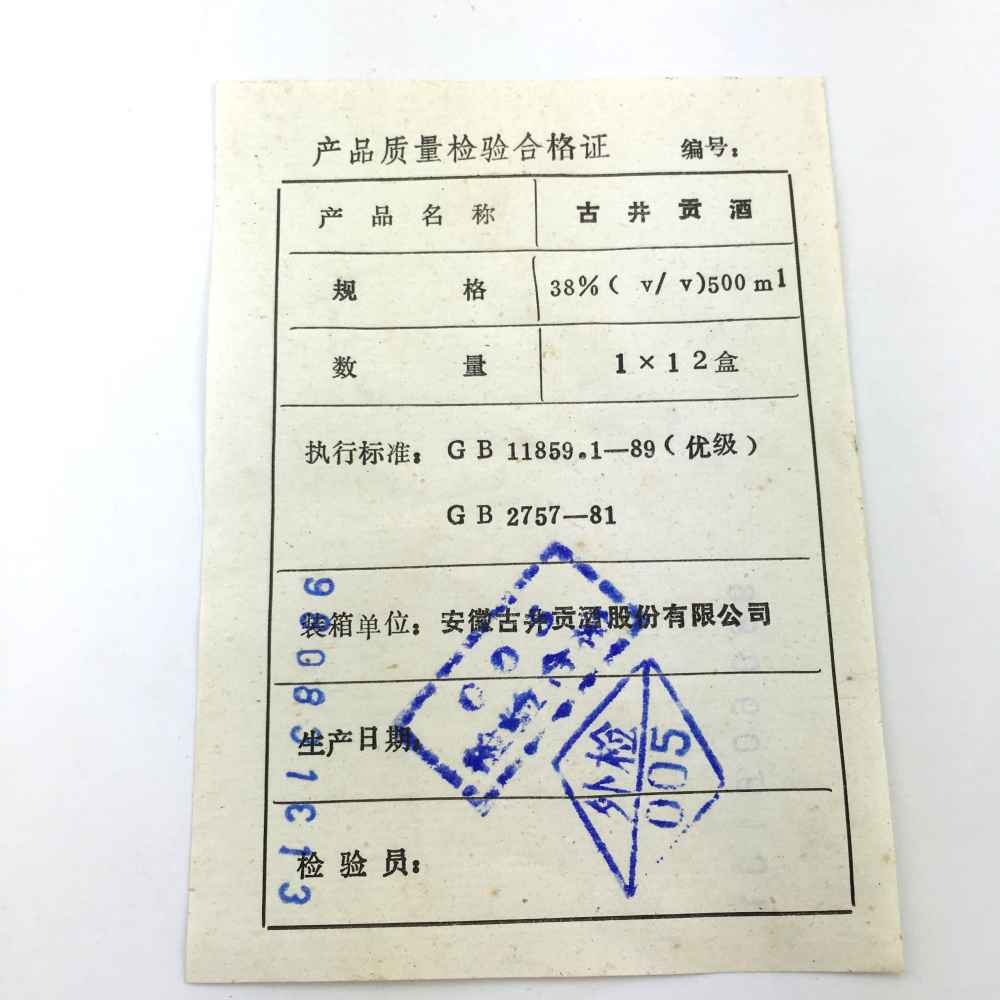 产品质量检验合格证 编号：
产品名称 古井贡酒
规格 38%( v/ v)500 ml
数量 1×12盒
执行标准：GB 11859.1—89(优级)
GB 2757—81
装箱单位：安徽古井贡酒股份有限公司
生产日期：
检验员：
外检
005